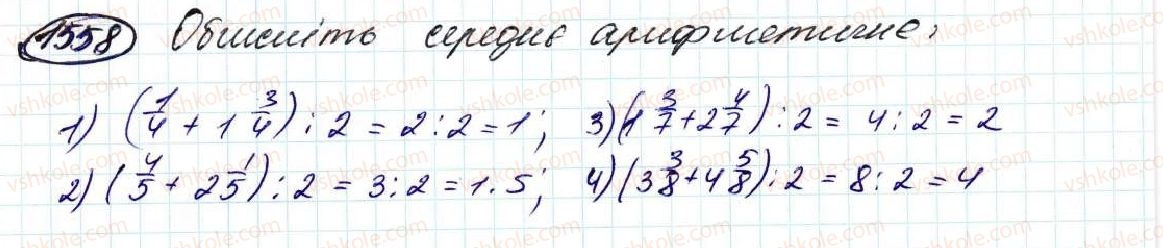 1558 Обчисліть середнє арифметичне:
1) (1/4 + 1 3/4) : 2 = 2 : 2 = 1; 3) (1 3/7 + 2 4/7) : 2 = 4 : 2 = 2
2) (4/5 + 2 1/5) : 2 = 3 : 2 = 1.5; 4) (3 3/8 + 4 5/8) : 2 = 8 : 2 = 4